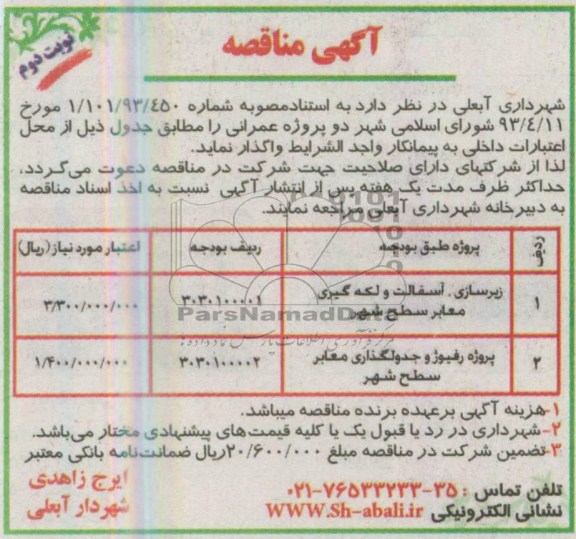 آگهی مناقصه
نوبت دوم
شهرداری آبعلی در نظر دارد به استنادمصوبه شماره ۱/۱۰۱/۹۳/٤٥۰ مورخ
۹۳/٤/۱۱ شورای اسلامی شهر دو پروژه عمرانی را مطابق جدول ذیل از محل
اعتبارات داخلی به پیمانکار واجد الشرایط واگذار نماید.
لذا از شرکتهای دارای صلاحیت جهت شرکت در مناقصه دعوت می‌گردد،
حداکثر ظرف مدت یک هفته پس از انتشار آگهی نسبت به اخذ اسناد مناقصه
به دبیرخانه شهرداری آبعلی مراجعه نمایند.
ردیف پروژه طبق بودجه ردیف بودجه اعتبار مورد نیاز(ریال)
۱ زیرسازی . آسفالت و لکه گیری معابر سطح شهر ۳۰۳۰۱۰۰۰۰۱ ۳/۳۰۰/۰۰۰/۰۰۰
۲ پروژه رفیوژ و جدولگذاری معابر سطح شهر ۳۰۳۰۱۰۰۰۰۲ ۱/۴۰۰/۰۰۰/۰۰۰
ParsNamadData
مرکز فرآوری اطلاعات پارس نماد داده‌ها
۱-هزینه آگهی برعهده برنده مناقصه میباشد.
۲-شهرداری در رد یا قبول یک یا کلیه قیمت‌های پیشنهادی مختار می‌باشد.
۳-تضمین شرکت در مناقصه مبلغ ۲۰/۶۰۰/۰۰۰ریال ضمانت‌نامه بانکی معتبر
تلفن تماس : ۳۵-۷۶۵۳۳۲۳۳-۰۲۱
نشانی الکترونیکی WWW.Sh-abali.ir
ایرج زاهدی
شهردار آبعلی